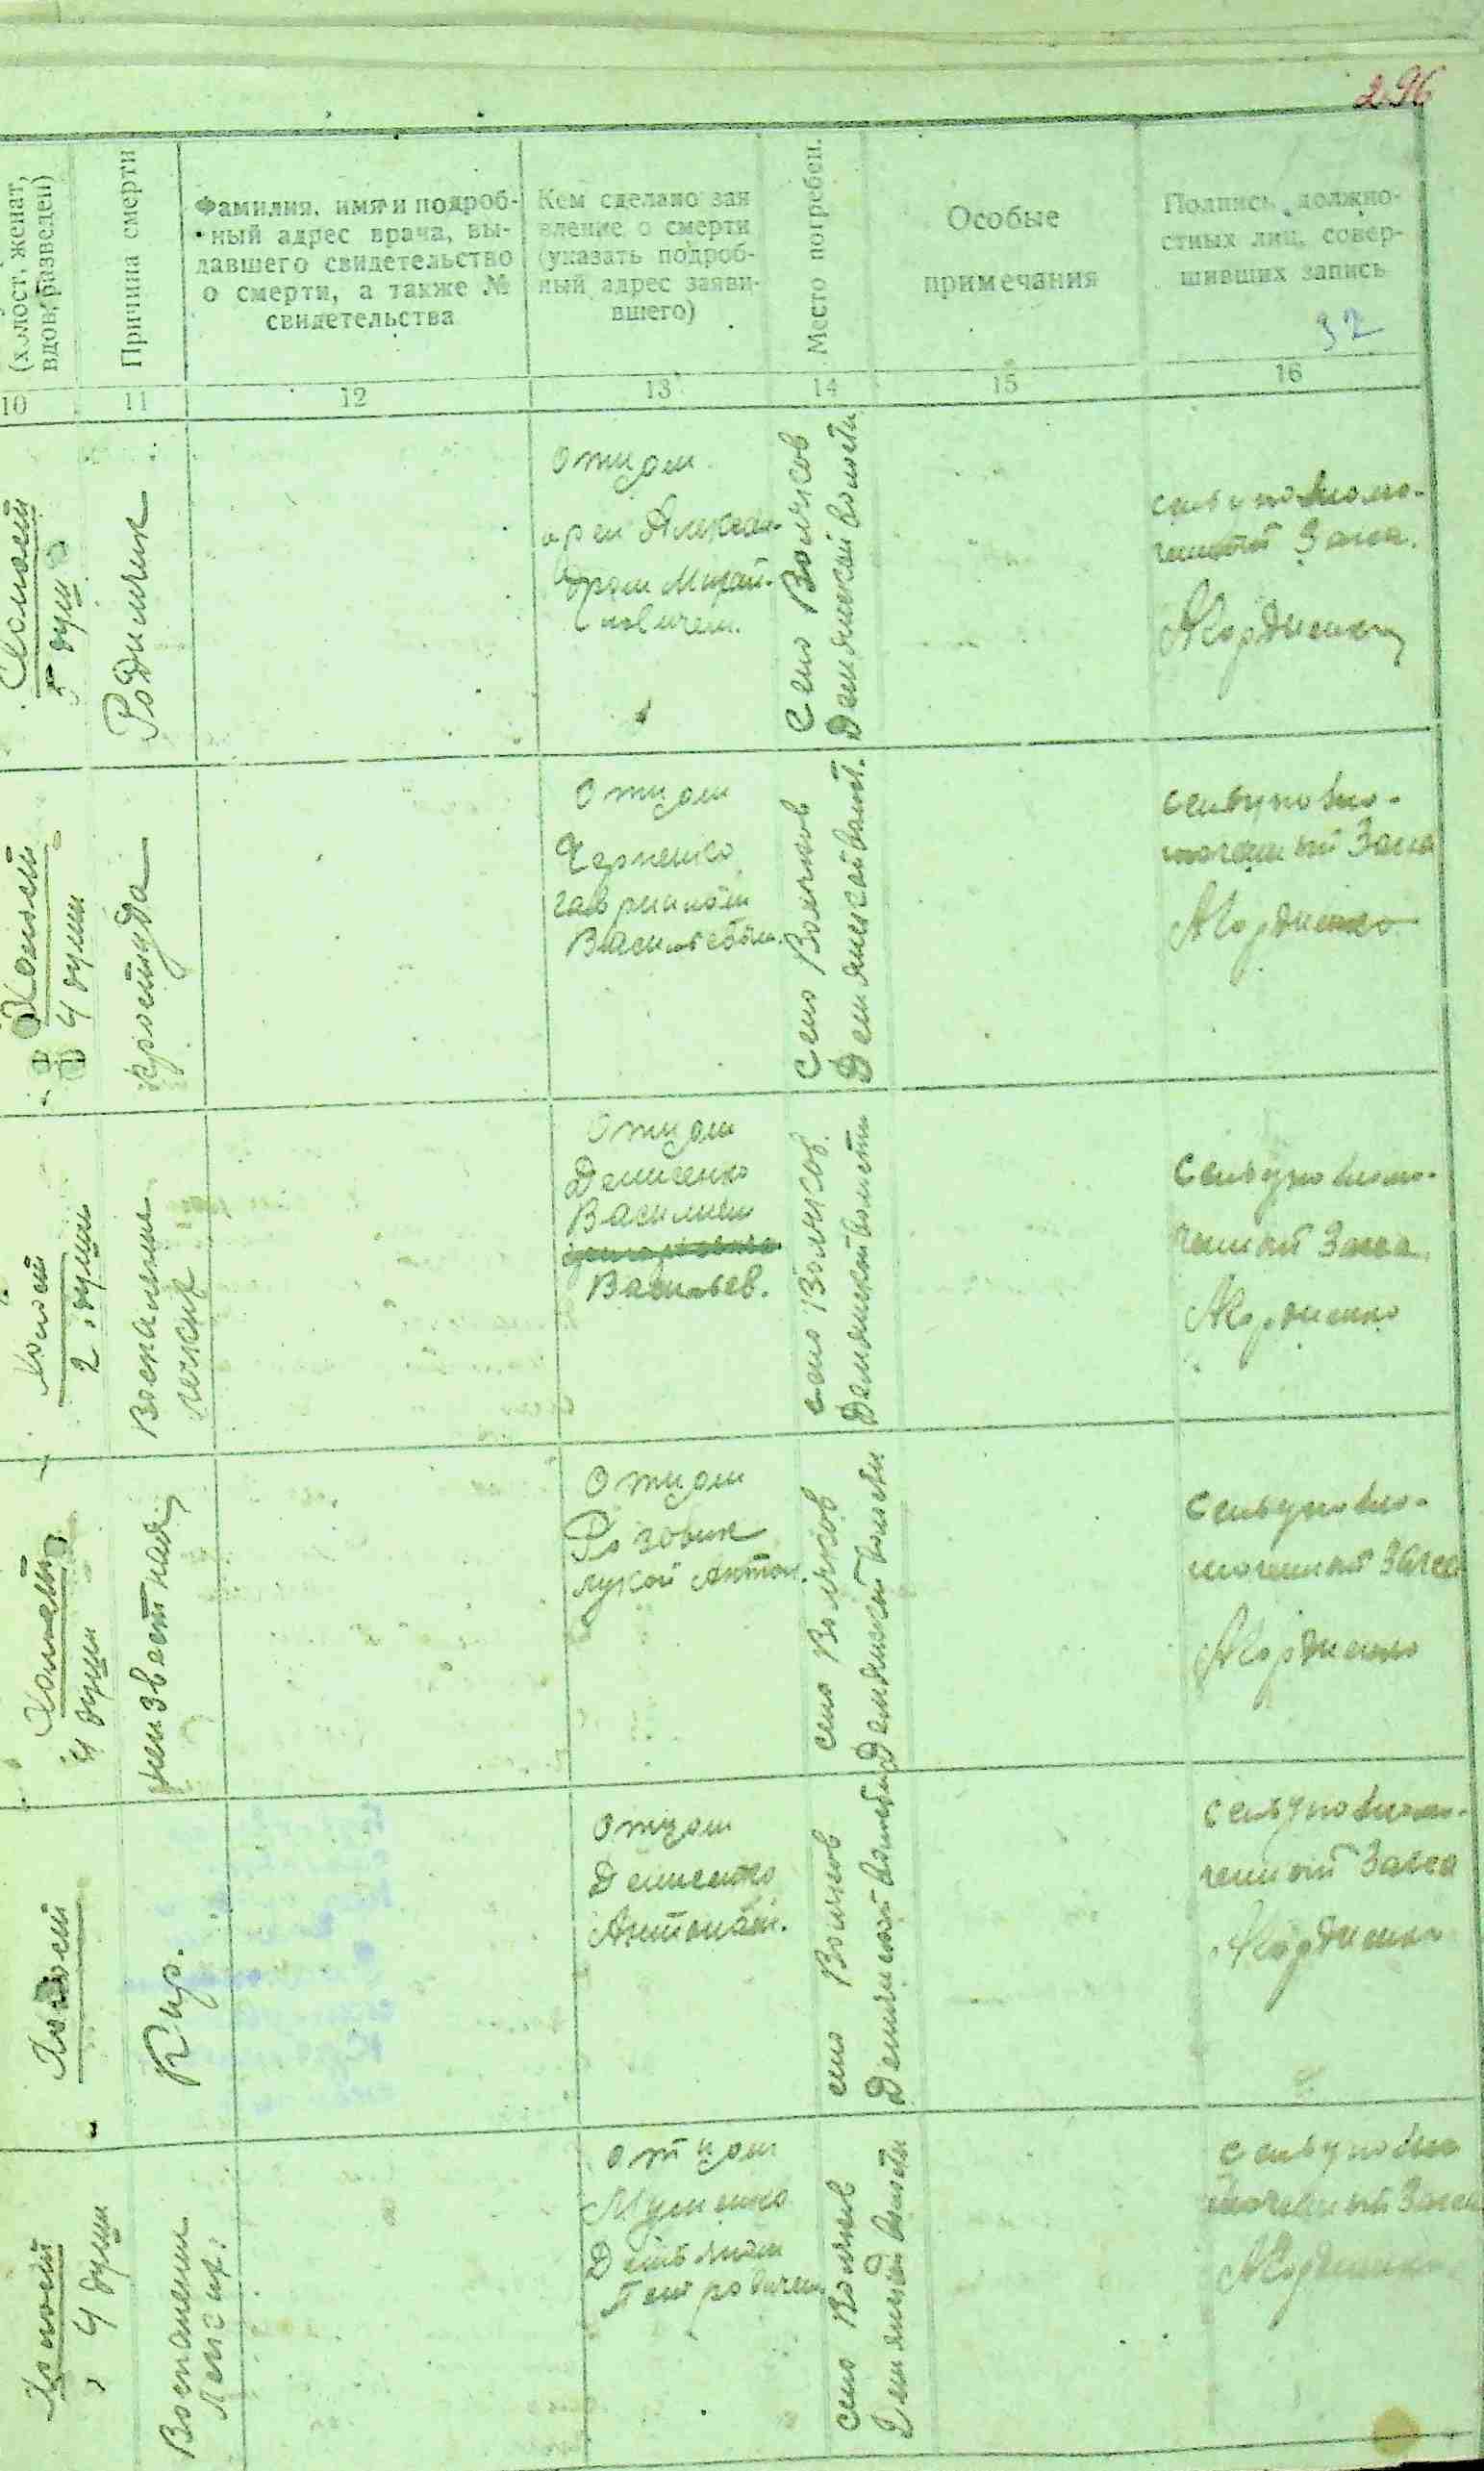 296
(холост, женат,
вдов, разведен)
Причина смерти
Фамилия, имя и подроб-
ный адрес врача, вы-
давшего свидетельство
о смерти, а также №
свидетельства
Кем сделано зая
вление о смерти
(указать подроб-
ный адрес заяви-
вшего)
Место погребен.
Особые
примечания
Подпись должно-
стных лиц, совер-
шивших запись
32
10
11
12
13
14
15
16
5 душ
Родимчик
Отцом
Алексан-
дром Михай-
ловичем.
Село Волчков
Демянской волости
сельуполномо-
ченный Загса.
АКордиенко
Холост
4 души
Простуда
Отцом
Черненко
Гавриилом
Васильевым.
Село Волчков
Демянской волост.
сельуполно-
моченный Загса
АКордиенко
Холост
2 души
Воспаление
легких
Отцом
Демченко
Василием
Васильев.
село Волчков
Демянской волости
Сельуполномо-
ченный Загса
АКордиенко
4 души
неизвестная
Отцом
Розовик
Лукой Антон.
село Волчков
Демянской волости
Сельуполно-
моченный Загса
АКордиенко
Холост
Кир.
Отцом
Демченко
Антоном.
село Волчков
Демянской волости
сельуполномо-
ченный Загса
АКордиенко
Холост
4 души
Воспалени
легких.
отцом
Демьяном
Петровичем
село Волчков
Демянской волости
сельуполно
моченный Загса
АКордиенко